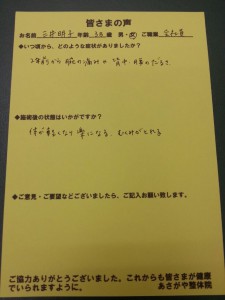 皆さまの声
お名前 年齢 33 歳 男・女 ご職業 会社員
◆いつ頃から、どのような症状がありましたか?
2年前から 肩の痛みや 背中・腰のだるさ
◆施術後の状態はいかがですか?
体が軽くなり 楽になる。むくみがとれる
◆ご意見・ご要望などございましたら、ご記入お願い致します。
ご協力ありがとうございました。これからも皆さまが健康
でいられますように。
あさがや整体院